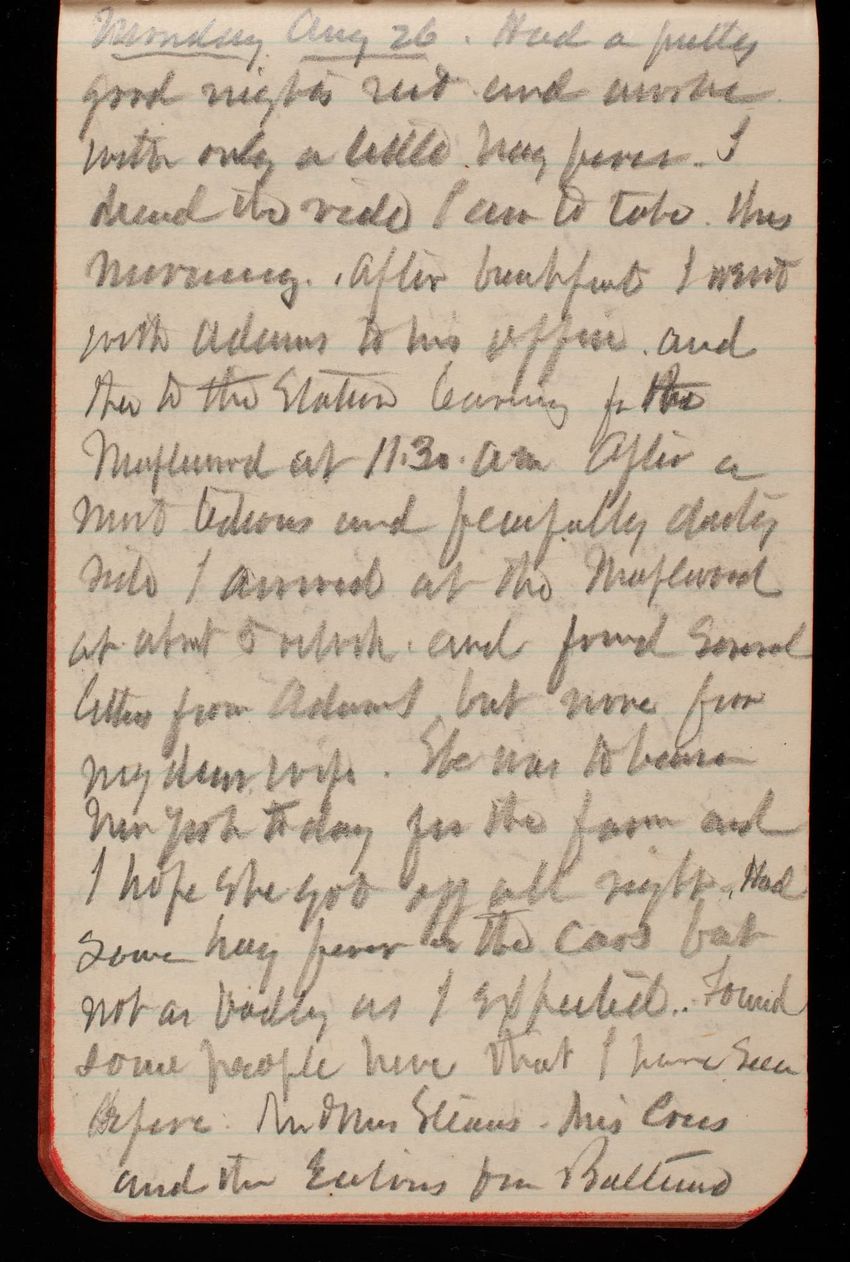 Monday Aug 26. Had a pretty
good nights rest and awoke
with only a little hay fever. I
dread the ride I am to take this
morning. After breakfast I went
with Adams to his office and
then to the Station leaving for the
Maplewood at 11.30. am After a
most tedious and fearfully dusty
ride I arrived at the Maplewood
at about 5 oclock and found several
letters from Adams but none from
my dear wife. She was to leave
New York to day for the farm and
I hope she got off all right. Had
some hay fever in the cars but
not as badly as I expected.. Found
some people here that I have seen
before. Mr & Mrs Stearns. Miss
and the from Baltimo